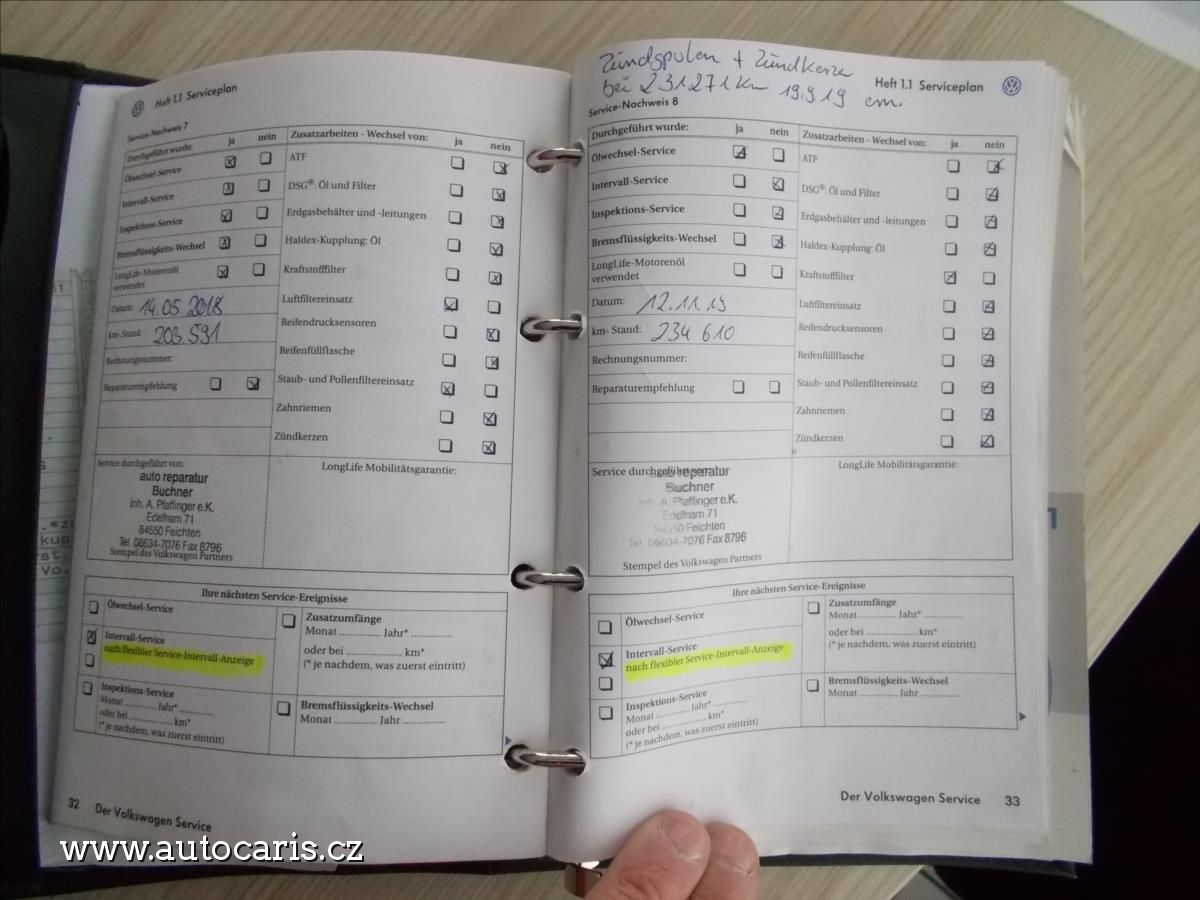 Heft 1.1 Serviceplan
Service-Nachweis 7
Durchgeführt wurde: ja nein
Ölwechsel-Service
Intervall-Service
Inspektions-Service
Bremsflüssigkeits-Wechsel
LongLife-Motorenöl
verwendet
Datum: 14.05.2018
km-Stand: 203 591
Rechnungsnummer:
Reparaturempfehlung
Zusatzarbeiten - Wechsel von: ja nein
ATF
DSG®: Öl und Filter
Erdgasbehälter und -leitungen
Haldex-Kupplung: Öl
Kraftstofffilter
Luftfiltereinsatz
Reifendrucksensoren
Reifenfüllflasche
Staub- und Pollenfiltereinsatz
Zahnriemen
Zündkerzen
Service durchgeführt von:
auto reparatur
Buchner
Inh. A. Pfaffinger e.K.
Edelham 71
84550 Feichten
Tel. 08634-7076 Fax 8796
Stempel des Volkswagen Partners
LongLife Mobilitätsgarantie:
Ihre nächsten Service-Ereignisse
Ölwechsel-Service
Intervall-Service
nach flexibler Service-Intervall-Anzeige
Inspektions-Service
Monat ............ Jahr* ............
oder bei ............ km*
(* je nachdem, was zuerst eintritt)
Zusatzumfänge
Monat ............ Jahr* ............
oder bei ............ km*
(* je nachdem, was zuerst eintritt)
Bremsflüssigkeits-Wechsel
Monat ............ Jahr ............
32 Der Volkswagen Service
Zündspulen + Zündkerze
bei 231271 km 19.9.19
Heft 1.1 Serviceplan
Service-Nachweis 8
Durchgeführt wurde: ja nein
Ölwechsel-Service
Intervall-Service
Inspektions-Service
Bremsflüssigkeits-Wechsel
LongLife-Motorenöl
verwendet
Datum: 12.11.19
km- Stand: 234 610
Rechnungsnummer:
Reparaturempfehlung
Zusatzarbeiten - Wechsel von: ja nein
ATF
DSG®: Öl und Filter
Erdgasbehälter und -leitungen
Haldex-Kupplung: Öl
Kraftstofffilter
Luftfiltereinsatz
Reifendrucksensoren
Reifenfüllflasche
Staub- und Pollenfiltereinsatz
Zahnriemen
Zündkerzen
Service durchgeführt von:
auto reparatur
Buchner
Inh. A. Pfaffinger e.K.
Edelham 71
84550 Feichten
Tel. 08634-7076 Fax 8796
Stempel des Volkswagen Partners
LongLife Mobilitätsgarantie:
Ihre nächsten Service-Ereignisse
Ölwechsel-Service
Intervall-Service
nach flexibler Service-Intervall-Anzeige
Inspektions-Service
Monat ............ Jahr* ............
oder bei ............ km*
(* je nachdem, was zuerst eintritt)
Zusatzumfänge
Monat ............ Jahr* ............
oder bei ............ km*
(* je nachdem, was zuerst eintritt)
Bremsflüssigkeits-Wechsel
Monat ............ Jahr ............
Der Volkswagen Service 33
www.autocaris.cz